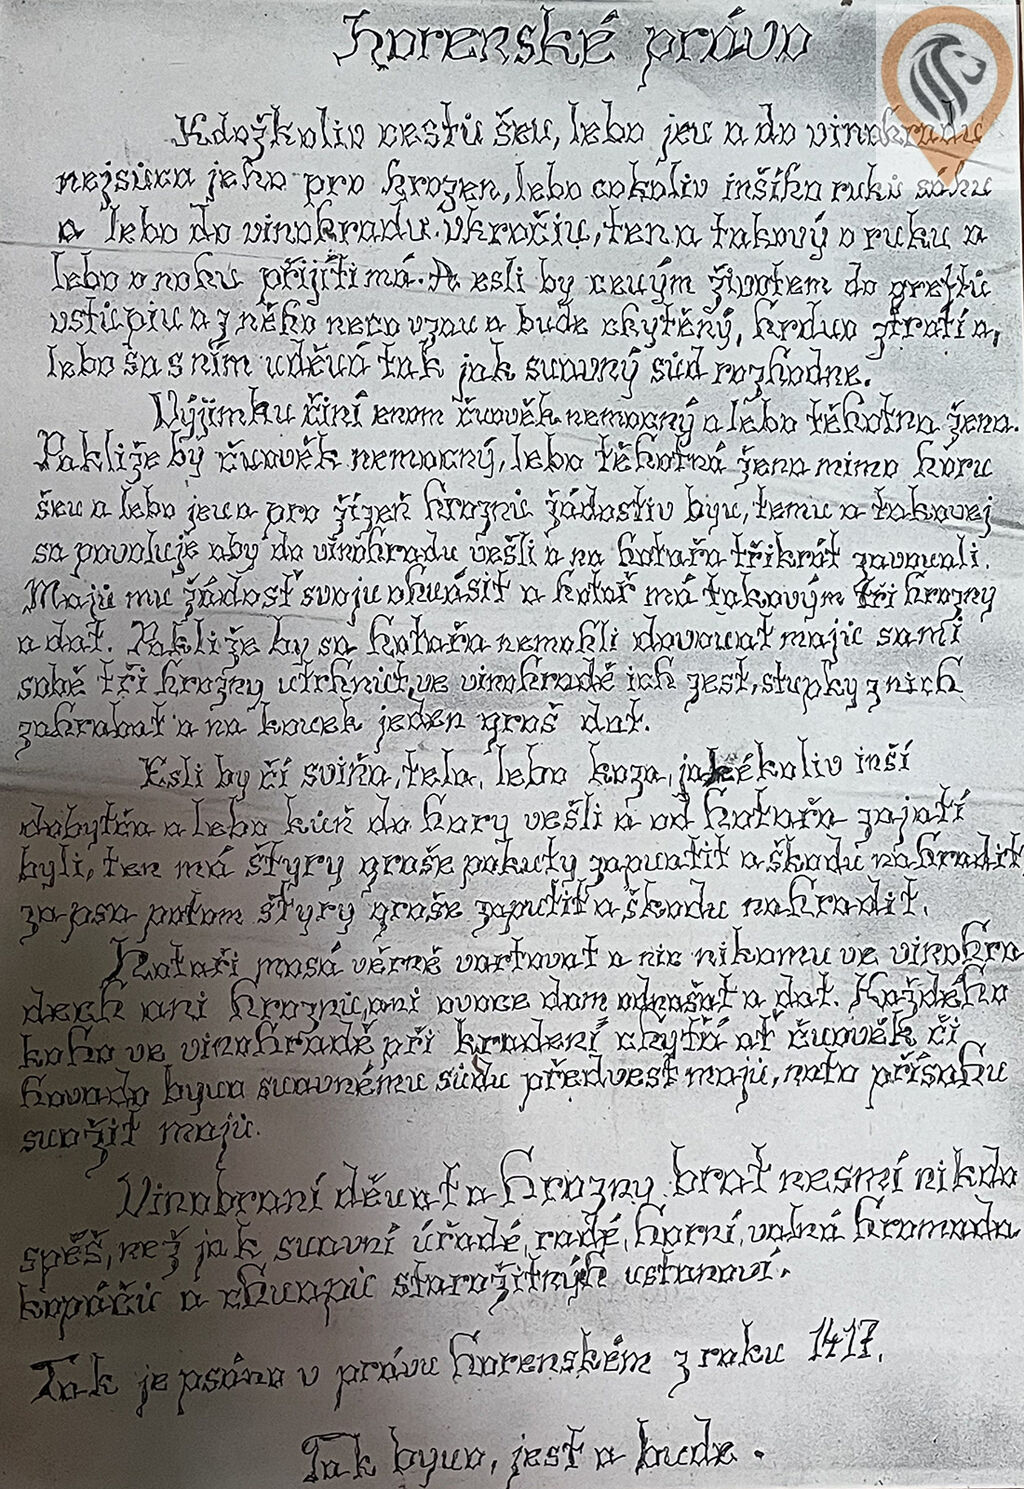 Horenské právo
Kdožkoliv cestú šeu, lebo jeu a do vinohradu
nejsúca jeho pro hrozen, lebo cokoliv inšího rukú sáhu
a lebo do vinohradu vkročiu, ten a takový o ruku a
lebo o nohu přijíti má. A esli by ceuým životem do
vstúpiu a z něho neco vzau a bude chytěný, hrduo ztratí a,
lebo sa s ním uděuá tak jak suavný súd rozhodne.
Výjimku činí enom čuověk nemocný a lebo těhotna žena.
Pakliže by čuověk nemocný, lebo těhotná žena mimo horu
šeu a lebo jeu a pro žízeň hroznú žádostiv byu, temu a takovej
sa povoluje aby do vinohradu vešli a na hotařa třikrát zavouali.
Majú mu žádosť svoju ohuásit a hotař má takovým tři hrozny
a dat. Pakliže by sa hotařa nemohli dovouat majú sami
sobě tři hrozny utrhnút, ve vinohradě ich zest, stupky z nich
zahrabat a na kouek jeden groš dat.
Esli by čí sviňa, tela, lebo koza, jakékoliv inší
dobytča a lebo kúň do hory vešli a od hotařa zajatí
byli, ten má štyry groše pokuty zapuatit a škodu nahradit,
za psa potom štyry groše zaputit a škodu nahradit.
Hotaři mosá věrně vartovat a nic nikomu ve vinohra
dech ani hroznú, ani ovoce dom odnášat a dat. Každého
koho ve vinohradě při kradení chyťá ať čuověk či
hovado byuo suavnému súdu předvest majú, nato přísahu
suožit majú.
Vinobraní děuat a hrozny brat nesmí nikdo
spěš, než jak suavní úřadé, radé, horní, valná hromada
kopáčú a chuapú starožitných ustanoví.
Tak je psáno v právu horenském z roku 1417.
Tak byuo, jest a bude.